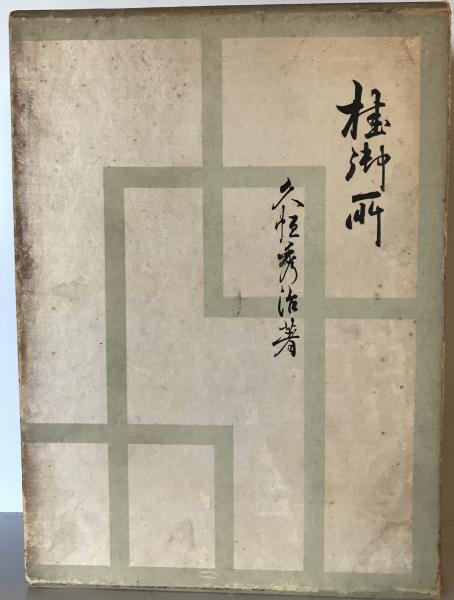 桂御所
久恒秀治著